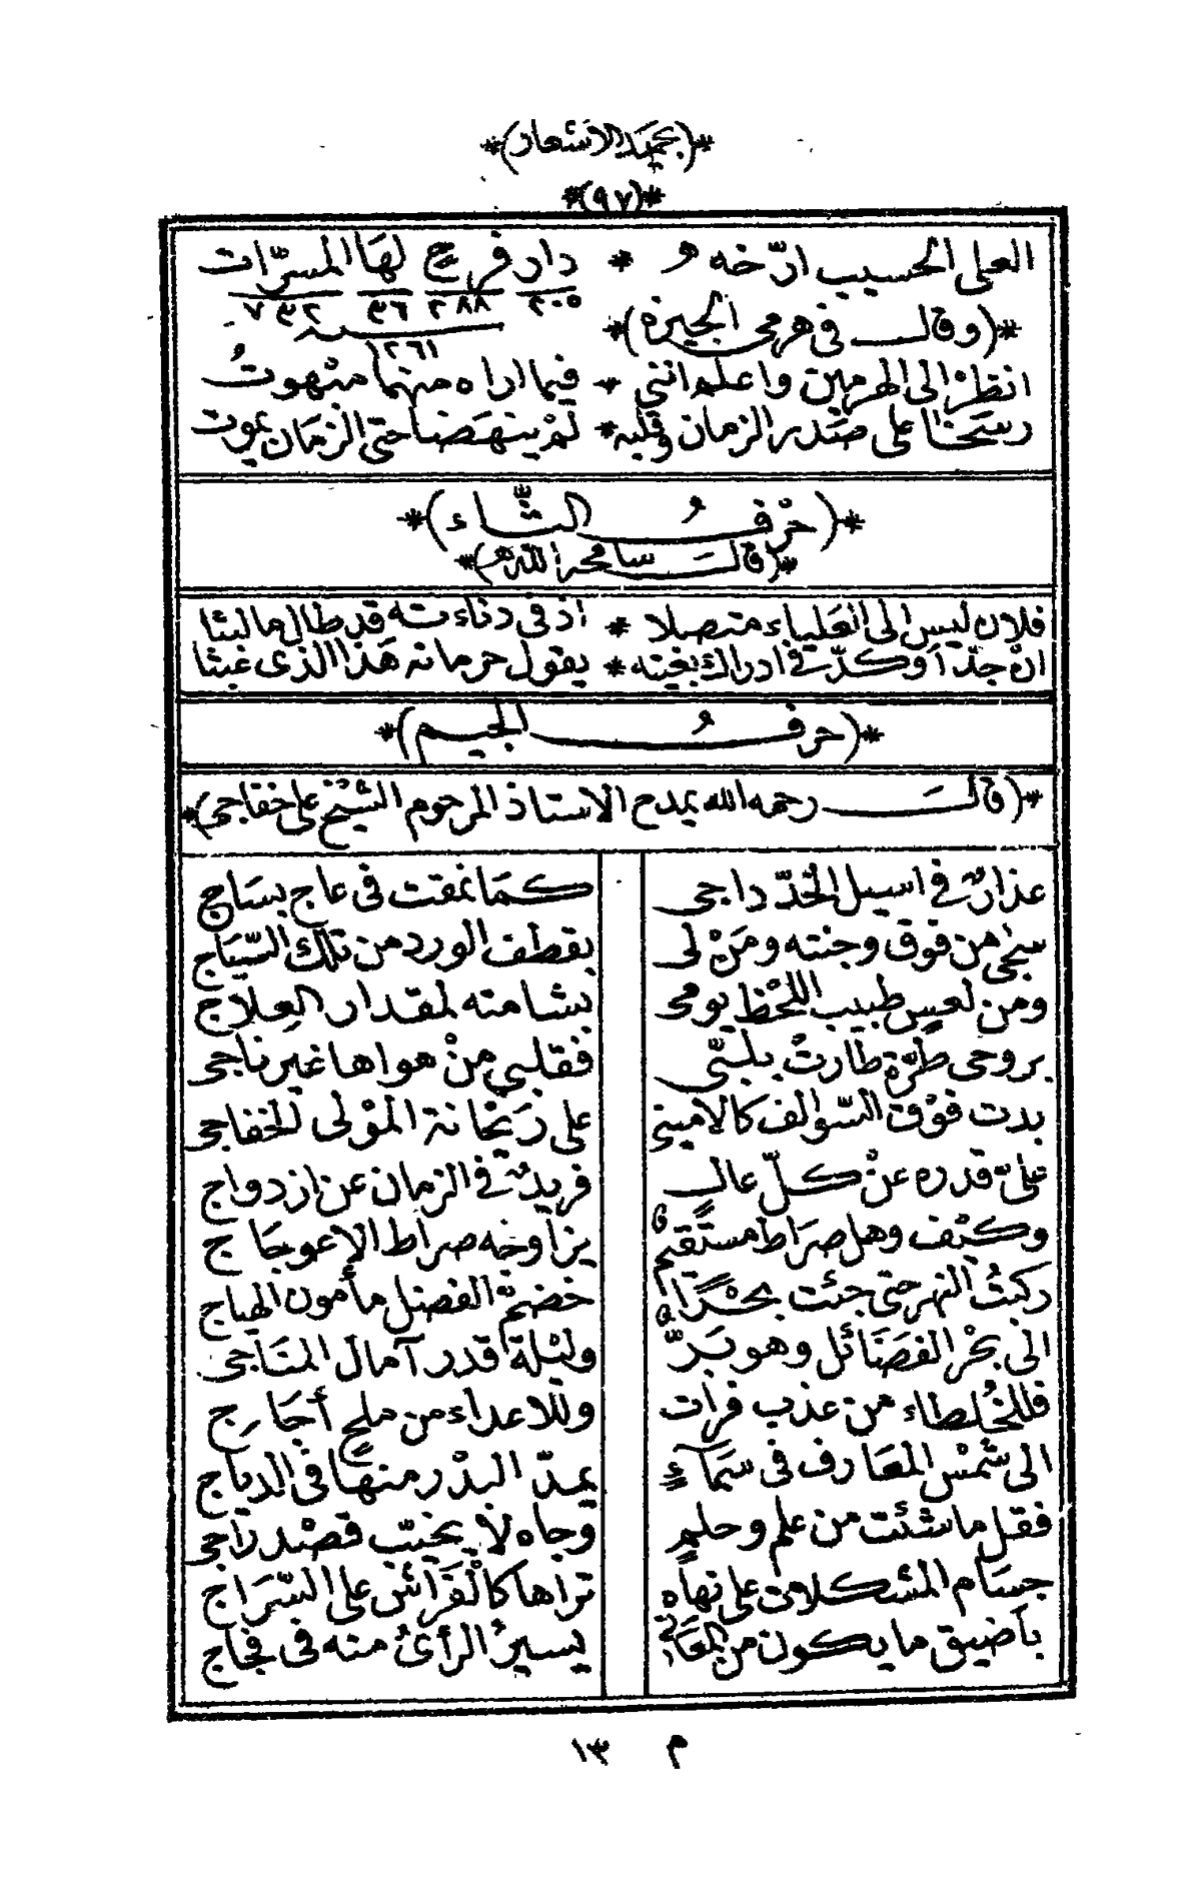 *(بحميد الاشعار)*
*(٩٧)*
العلى الحسيب ارّخه * دار فرج لها المسرّات
٢٠٥ ٢٨٨ ٣٦ ٧٣٢
*(وقال فى هرمى الجيزة)*
١٢٦١
انظرْ الى الهرمين واعلم اننى * فيما اراه منهما مبْهوتُ
رسَخا على صَدر الزمان وقلبه * لمْ ينهضا حتى الزمان يموت
*(حرْفُ الثّاء)*
*(قالَ سامحه الله)*
فلان ليس الى العلياء متصلا * اذ فى دناءته قد طال ما لبثا
انْ جدّ أو كدّ فى ادراك بغيته * يقول حرمانه هَذا الذى عبثا
*(حرفُ الجيم)*
*(قالَ رحمه الله يمدح الاستاذ المرحوم الشيْخ على خفاجى)*
عذارٌ فى اسيل الخدّ داجى كمَا نمقت فى عاج بسَاج
سجى من فوق وجنته ومَنْ لى بقطف الورد من تلك السّيَاج
ومن لعسٍ طبيب اللحْظ يومى بشامته لمقدار العِلاج
بروحى طرّة طارتْ بلبّى فقلبى منْ هواها غير ناجى
بدت فوْق السّوالف كالامينى على رَيْحانة الموْلى الخفاجى
علىّ قدره عنْ كلّ عالٍ فريدٌ فى الزمان عن ازدواج
وكيْف وهل صرَاط مستقيم يزاوجه صراط الاعوجَاج
ركبتُ النهر حتى جئت بحْرًا خضمّ الفضل مأمون الهياج
الى بحْر الفضَائل وهو بَرٌّ وليْلة قدر آمال المنَاجى
فللخُلطاء من عذب فرات وللاعداء من ملحٍ أجَاج
الى شمْس المعَارف فى سمَاءٍ يمدّ البدْر منهَا فى الدياج
فقل ما شئت من علم وحلمٍ وجاه لا يخيّب قصْد راجى
جسَام المشكلات على نهَاه تراها كالْفَرَاش على السّرَاج
بأضيق ما يكون من المعَانى يسيرُ الرأىُ منه فى فجَاج
م ١٣